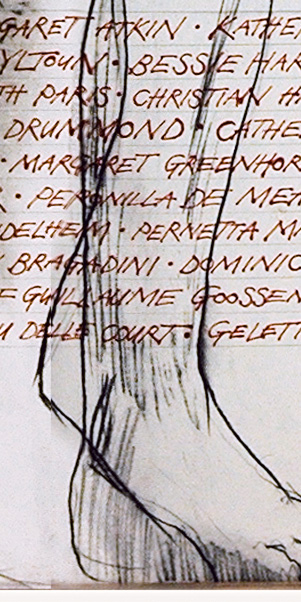 GARET ATKIN · KATHE
YLTOUN · BESSIE HAR
TH PARIS · CHRISTIAN H
DRUMMOND · CATHE
· MARGARET GREENHOR
· PERONILLA DE ME
DELHEIM · PERNETTA M
BRAGADINI · DOMINIC
E GUILLAUME GOOSSEN
U DELLE COURT · GELET